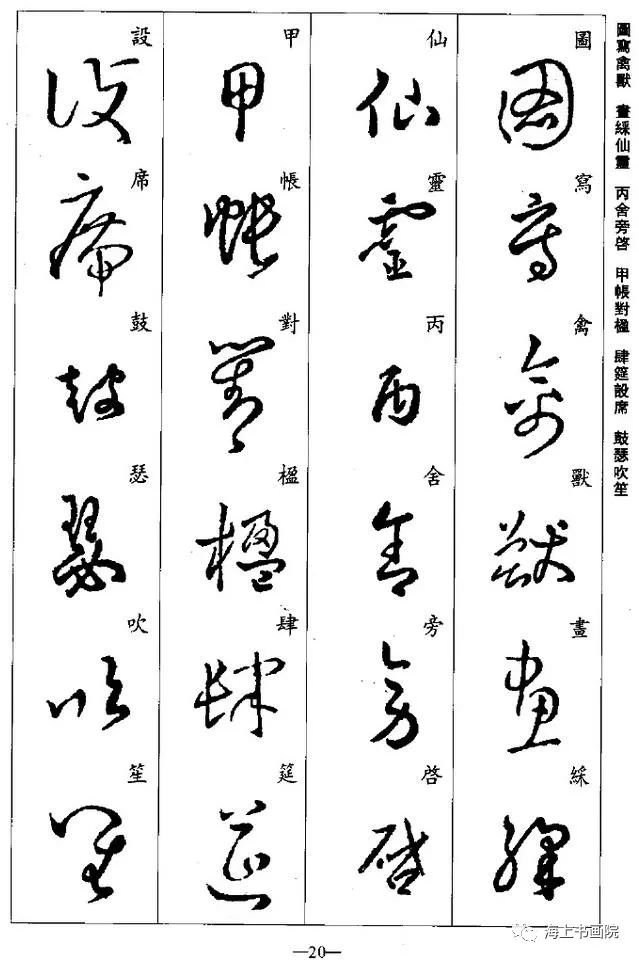 圖寫禽獸　畫綵仙靈　丙舍旁啓　甲帳對楹　肆筵設席　鼓瑟吹笙
圖寫禽獸畫綵
仙靈丙舍旁啓
甲帳對楹肆筵
設席鼓瑟吹笙
—20—
海上书画院